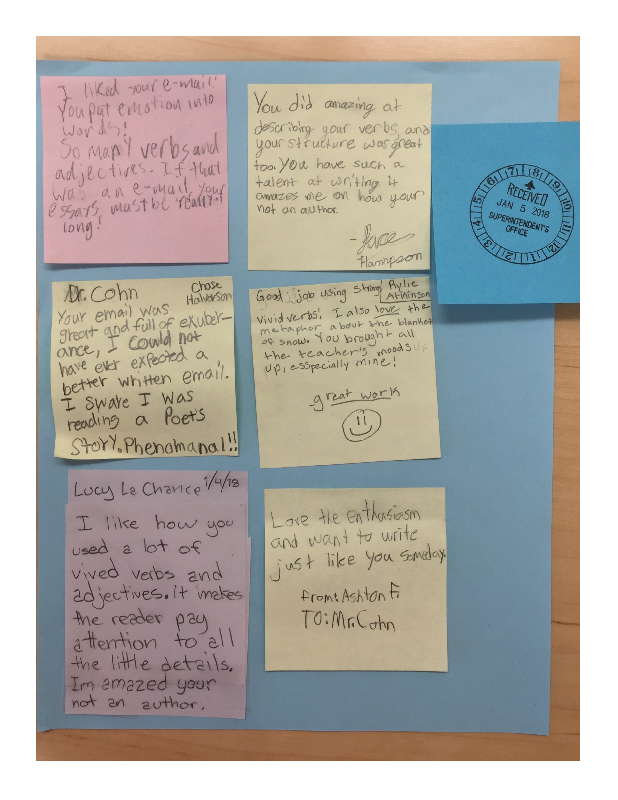 I liked your e-mail!
You put emotion into
words!
So many verbs and
adjectives. If that
was an e-mail, your
essays must be really
long!
You did amazing at
describing your verbs, and
your structure was great
too. You have such a
talent at writing it
amazes me on how your
not an author.
Hampson
RECEIVED
JAN 5 2018
SUPERINTENDENT'S
OFFICE
Dr. Cohn
Chase
Halverson
Your email was
great and full of exuber-
ance, I could not
have ever expected a
better written email.
I sware I was
reading a Poets
Story. Phenomanal!!
Good job using strong
Rylie
Atkinson
vivid verbs! I also love the
metaphor about the blanket
of snow. You brought all
the teacher's moods up
up, esspecially mine!
-great work
Lucy La Chance 1/4/18
I like how you
used a lot of
vived verbs and
adjectives. it makes
the reader pay
attention to all
the little details.
Im amazed your
not an author.
Love the enthusiasm
and want to write
just like you someday.
from: Ashton F.
TO: Mr. Cohn